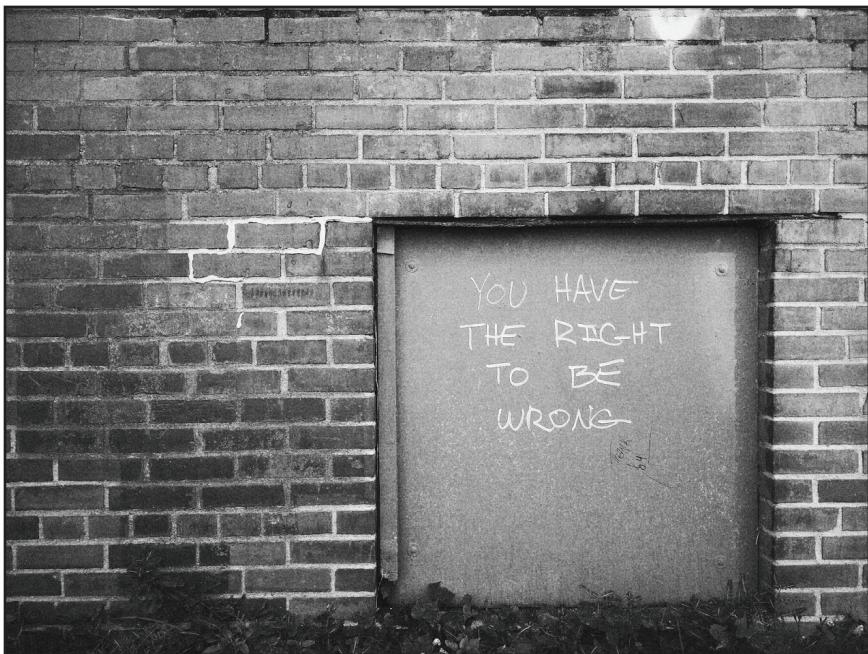 YOU HAVE
THE RIGHT
TO BE
WRONG